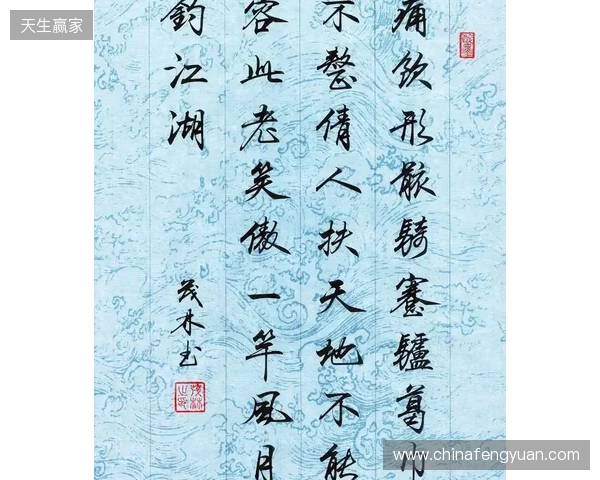 天生赢家
痛飲形骸騎蹇驢葛巾
不整倩人扶天地不能
容此老笑傲一竿風月
釣江湖
茂林书
www.chinafengyuan.com